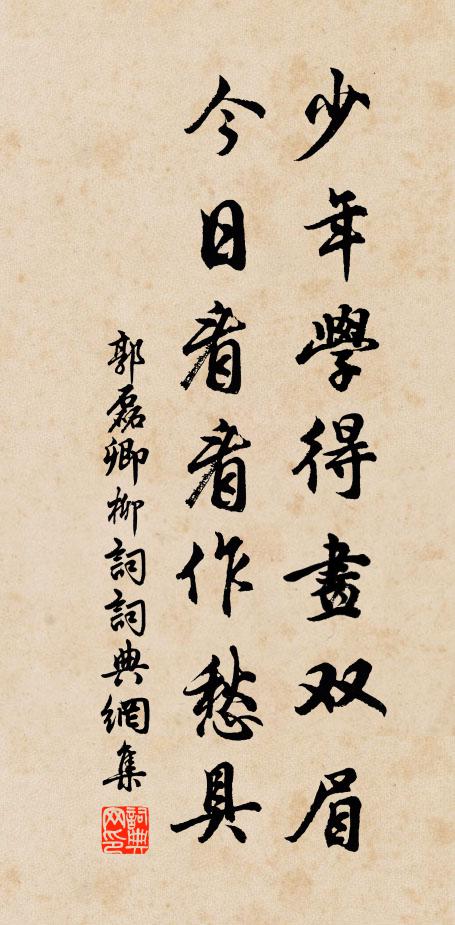 少年學得畫双眉
今日看看作愁具
郭磊卿柳詞詞典網集
詞典网印